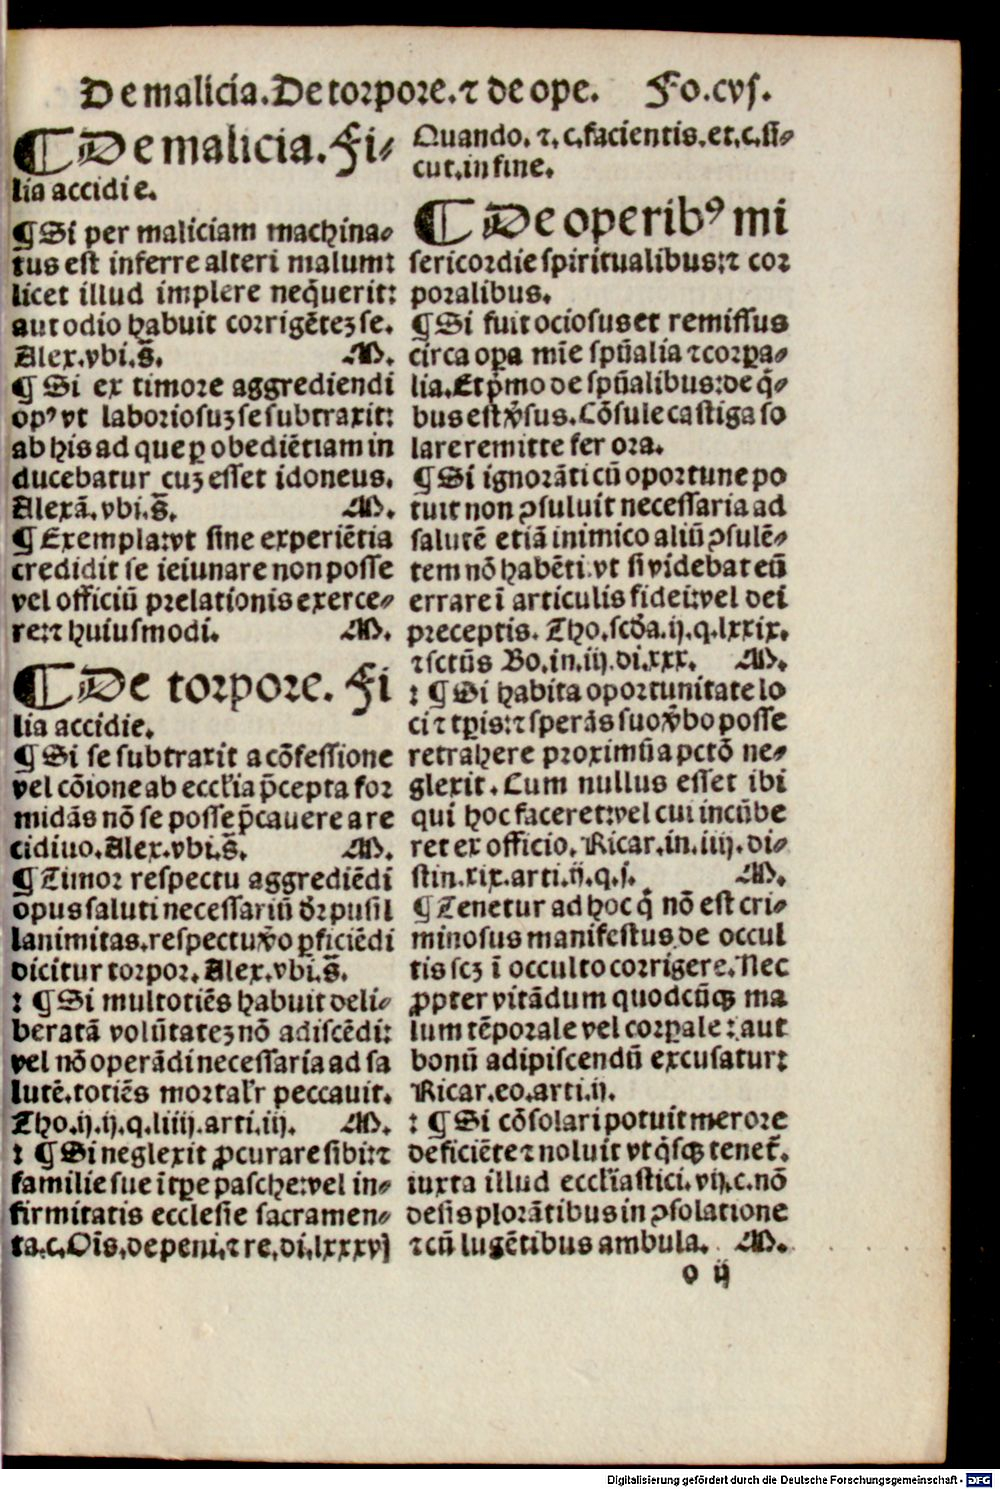 De malicia. De torpore. ⁊ de ope. Fo. cvj.
¶ De malicia. Fi⸗
lia accidie.
¶ Si per maliciam machina⸗
tus est inferre alteri malum:
licet illud implere neq̃uerit:
aut odio habuit corrigētez se.
Alex. vbi. s̄. M.
¶ Si ex timore aggrediendi
opꝰ vt laboriosuz se subtraxit:
ab his ad que ꝑ obediētiam in
ducebatur cuz esset idoneus.
Alexā. vbi. s̄. M.
¶ Exempla: vt sine experiētia
credidit se ieiunare non posse
vel officiū prelationis exerce⸗
re: ⁊ huiusmodi. M.
¶ De torpore. Fi
lia accidie.
¶ Si se subtraxit a cōfessione
vel cōione ab eccl'ia p̄cepta for
midās nō se posse p̄cauere a re
cidiuo. Alex. vbi. s̄. M.
¶ Timor respectu aggrediēdi
opus saluti necessariū dr̄ pusil
lanimitas. respectu v̊o ꝑficiēdi
dicitur torpor. Alex. vbi. s̄.
: ¶ Si multotiēs habuit deli⸗
beratā volūtatez nō adiscēdi:
vel nō operādi necessaria ad sa
lutē. totiēs mortal'r peccauit.
Tho. ij. ij. q. liiij. arti. iij. M.
: ¶ Si neglexit ꝓcurare sibi: ⁊
familie sue ī tꝑe pasche: vel in⸗
firmitatis ecclesie sacramen⸗
ta. c. Oīs. de peni. ⁊ re. di. lxxxvj
Quando. ⁊. c. facientis. et. c. si⸗
cut. in fine.
¶ De operibꝰ mi
sericordie spiritualibus: ⁊ cor
poralibus.
¶ Si fuit ociosus et remissus
circa oꝑa mīe spūalia ⁊ corꝑa⸗
lia. Et p̊mo de spūalibus: de q̊⸗
bus est v̊sus. Cōsule castiga so
lare remitte fer ora.
¶ Si ignorāti cū oportune po
tuit non ꝯsuluit necessaria ad
salutē etiā inimico aliū ꝯsulē⸗
tem nō habēti. vt si videbat eū
errare ī articulis fidei: vel dei
preceptis. Tho. scd̄a. ij. q. lxxix.
⁊ sctūs Bo. in. iij. di. xxx. M.
: ¶ Si habita oportunitate lo
ci ⁊ tꝑis: ⁊ sperās suo v̊bo posse
retrahere proximū a pctō ne⸗
glexit. Cum nullus esset ibi
qui hoc faceret: vel cui incūbe
ret ex officio. Ricar. in. iiij. di⸗
stin. xix. arti. ij. q. j. M.
¶ Tenetur ad hoc q̄ nō est cri⸗
minosus manifestus de occul
tis scz ī occulto corrigere. Nec
ꝓpter vitādum quodcūqꝫ ma
lum tēporale vel corꝑale: aut
bonū adipiscendū excusatur:
Ricar. eo. arti. ij.
: ¶ Si cōsolari potuit merore
deficiēte ⁊ noluit vt q̊sqꝫ tenet̃.
iuxta illud eccl'iastici. vij. c. nō
desis plorātibus in ꝯsolatione
⁊ cū lugētibus ambula. M.
o ij
Digitalisierung gefördert durch die Deutsche Forschungsgemeinschaft - DFG